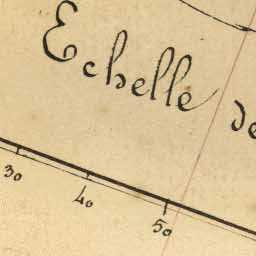 Echelle de
30 40 50